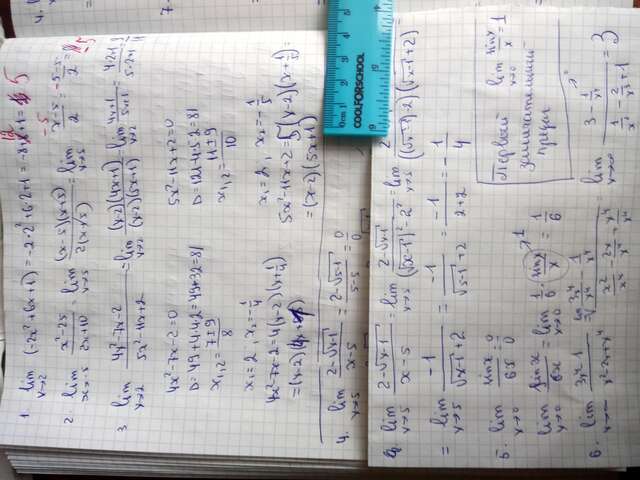 1. lim x→2 (-2x²+6x+1) = -2·2²+6·2+1 = -8+ +1 = 5
2. lim x→-5 x²-25 / 2x+10 = lim x→-5 (x-5)(x+5) / 2(x+5) = lim x→-5 x-5 / 2 = -5-5 / 2 = -5
3. lim x→2 4x²-7x-2 / 5x²-11x+2 = lim x→2 (x-2)(4x+1) / (x-2)(5x-1) = lim x→2 4x+1 / 5x-1 = 4·2+1 / 5·2-1
4x²-7x-2=0
D=49+4·4·2=49+32=81
x₁,₂= 7±9 / 8
x₁=2, x₂=-1/4
4x²-7x-2=4(x-2)(x+1/4)=
=(x-2)(4x+1)
5x²-11x+2=0
D=121-4·5·2=81
x₁,₂= 11±9 / 10
5x²-11x+2=5(x-2)(x+1/5)=
=(x-2)(5x+1)
4. lim x→5 2-√x-1 / x-5 = 2-√5-1 / 5-5 = 0/0
0cm 1
COOLFORSCHOOL
lim x→5 2-√x-1 / x-5 = lim x→5
= lim x→5 -1 / √x-1+2 = -1 / √5-1+2 = -1 / 2+2 = -1/4
5. lim x→0 sinx / 6x = 0/0
lim x→0 sinx / 6x = lim x→0 1/6 · sinx / x = 1/6
1
Первый
замечательный
предел
lim x→0 sinx / x = 1
6. lim x→∞ 3x⁴-1 / x²-2x+x⁴ = lim x→∞ 3x⁴/x⁴ - 1/x⁴ / x²/x⁴ - 2x/x⁴ + x⁴/x⁴ = lim x→∞ 3 - 1/x⁴ / 1/x² - 2/x³ + 1 = 3